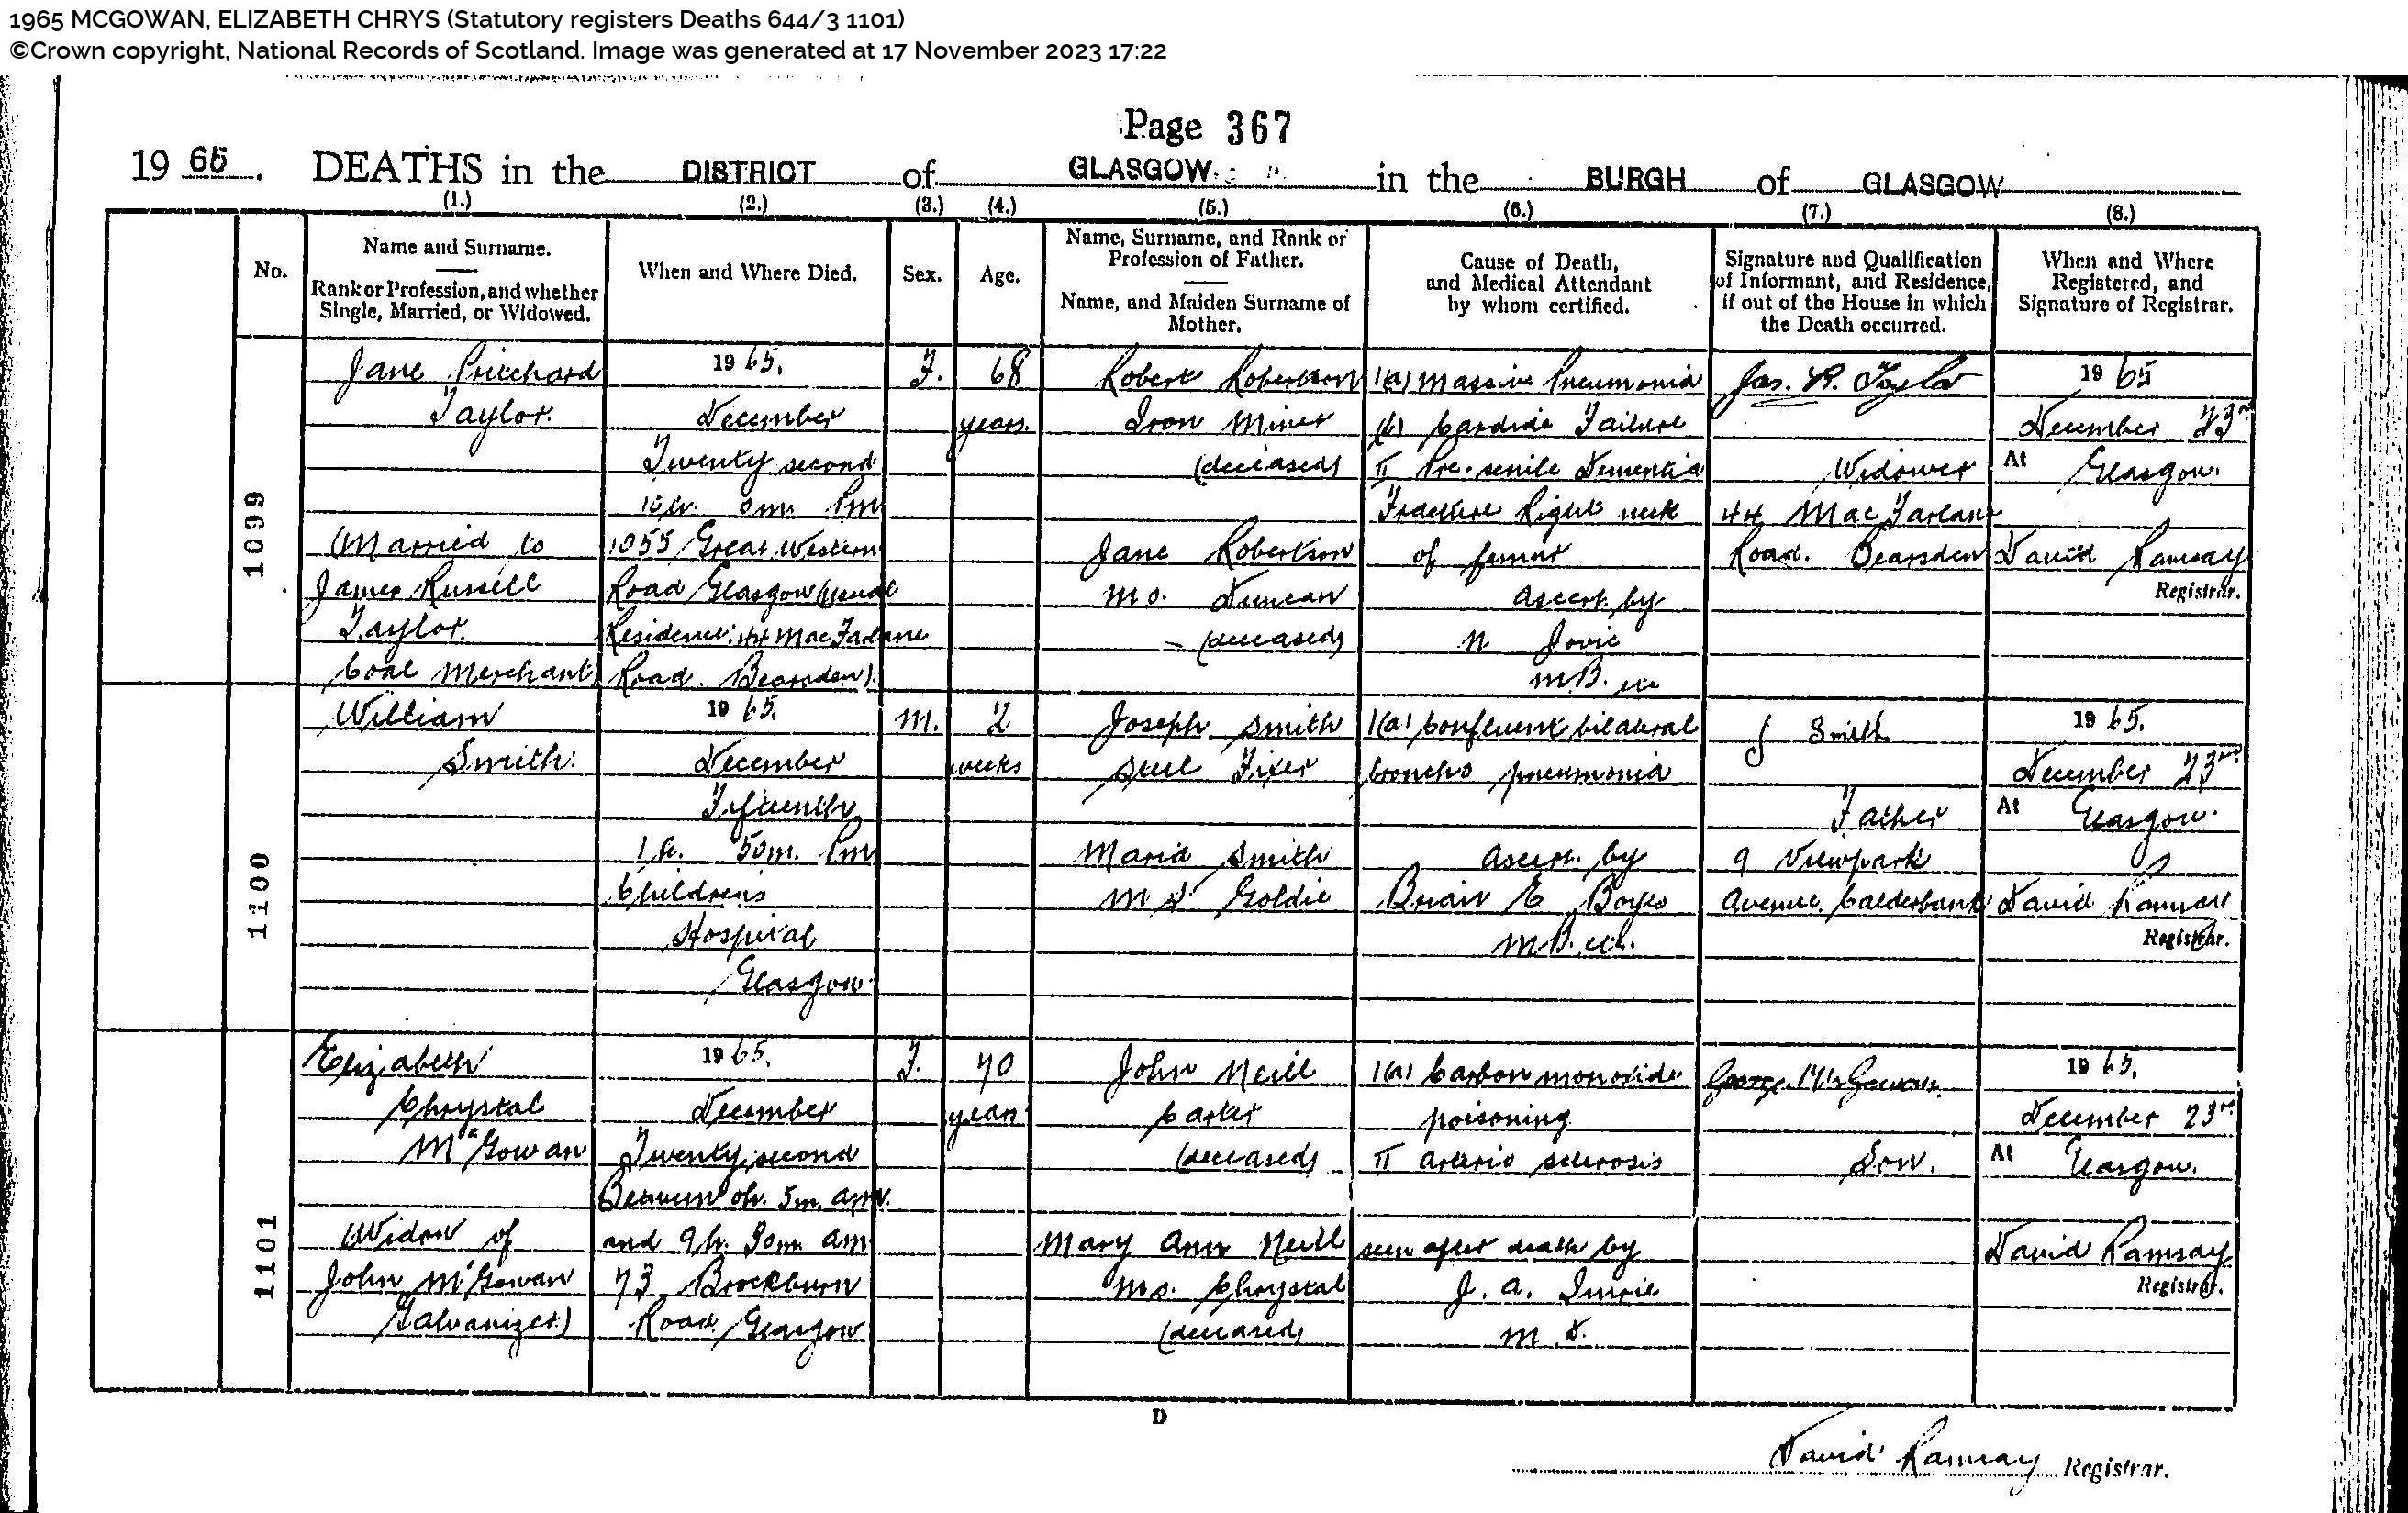 1965 MCGOWAN, ELIZABETH CHRYS (Statutory registers Deaths 644/3 1101)
©Crown copyright, National Records of Scotland. Image was generated at 17 November 2023 17:22
Page 367
19 65. DEATHS in the DISTRICT of GLASGOW in the BURGH of GLASGOW
(1.) (2.) (3.) (4.) (5.) (6.) (7.) (8.)
No.
Name and Surname.
Rank or Profession, and whether
Single, Married, or Widowed.
When and Where Died.
Sex.
Age.
Name, Surname, and Rank or
Profession of Father.
Name, and Maiden Surname of
Mother.
Cause of Death,
and Medical Attendant
by whom certified.
Signature and Qualification
of Informant, and Residence,
if out of the House in which
the Death occurred.
When and Where
Registered, and
Signature of Registrar.
1099
Jane Pritchard
Taylor.
(Married to
James Russell
Taylor
Coal Merchant)
1965.
December
Twenty second
10h. 0m. Pm
1055 Great Western
Road Glasgow (usual
Residence: 44 MacFarlane
Road. Bearsden).
F.
68
years.
Robert Robertson
Iron Miner
(deceased)
Jane Robertson
m.s. Duncan
(deceased)
1(a) Massive Pneumonia
(b) Cardiac Failure
II Pre-senile Dementia
Fracture Right neck
of femur
Ascert. by
N Jovic
M.B. etc
Jas. R. Taylor
Widower
44 MacFarlane
Road. Bearsden
1965
December 23rd
At Glasgow.
David Ramsay
Registrar.
1100
William
Smith.
1965.
December
Fifteenth
1h. 50m. Pm
Childrens
Hospital
Glasgow.
M.
2
weeks
Joseph Smith
Steel Fixer
Maria Smith
M S Goldie
1(a) Confluent bilateral
broncho pneumonia
Ascert. by
Brian E
M.B. etc.
J Smith
Father
9 Viewpark
Avenue. Calderbank
1965.
December 23rd
At Glasgow.
David Ramsay
Registrar.
1101
Elizabeth
Chrystal
McGowan
(Widow of
John McGowan
Galvanizer)
1965.
December
Twenty second
Between 0h. 5m. am.
and 9h. 30m. am
73 Brockburn
Road Glasgow
F.
70
years
John Neill
Carter
(deceased)
Mary Ann Neill
m.s. Chrystal
(deceased)
1(a) Carbon monoxide
poisoning
II arterio sclerosis
seen after death by
J. A. Imrie
M.D.
George McGowan.
Son.
1965.
December 23rd
At Glasgow.
David Ramsay
Registrar.
D
David Ramsay Registrar.